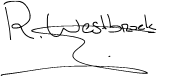 R. Westbrook